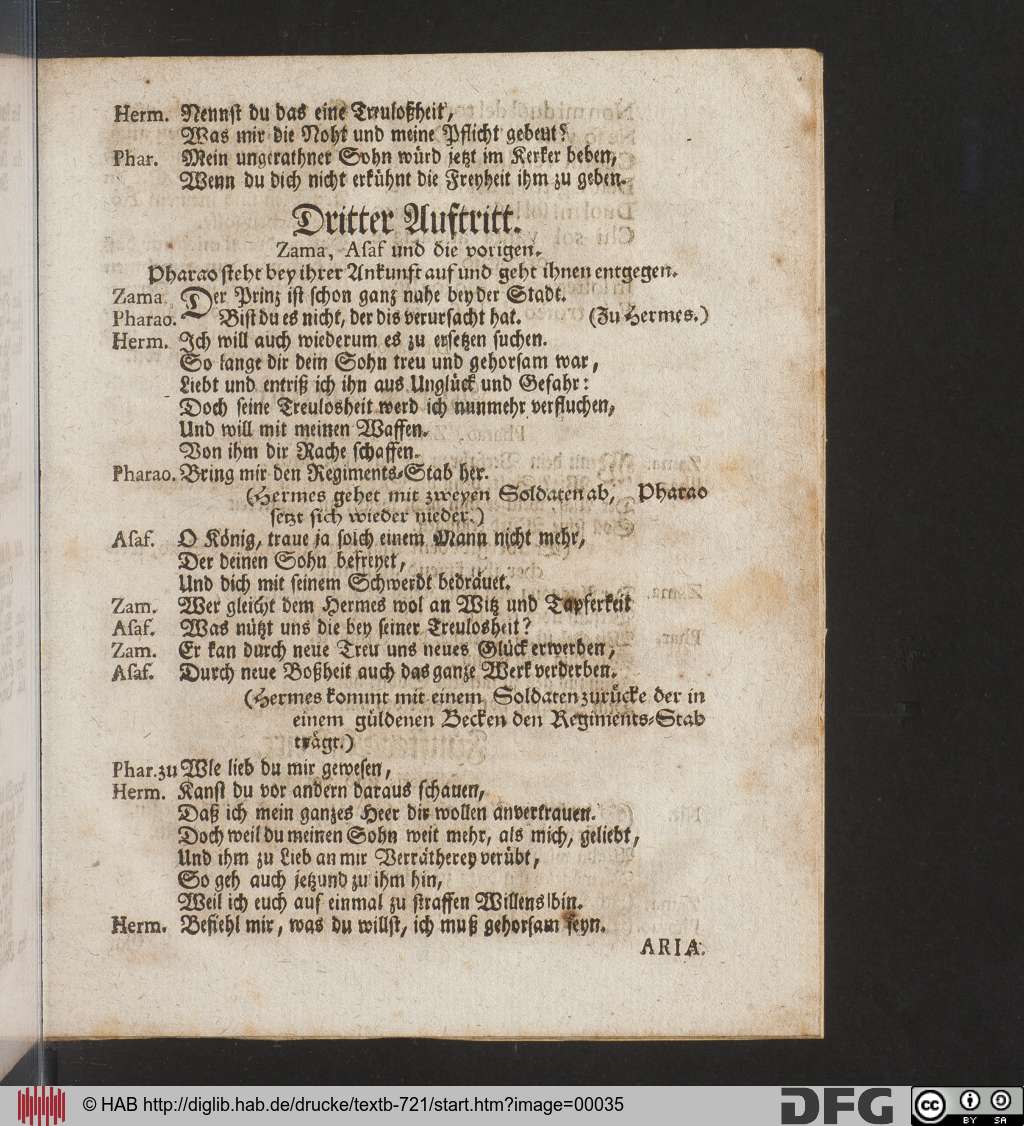 Herm. Nennst du das eine Treuloßheit,
Was mir die Noht und meine Pflicht gebeut?
Phar. Mein ungerathner Sohn würd jetzt im Kerker beben,
Wenn du dich nicht erkühnt die Freyheit ihm zu geben.
Dritter Auftritt.
Zama, Asaf und die vorigen.
Pharao steht bey ihrer Ankunft auf und geht ihnen entgegen.
Zama. Der Prinz ist schon ganz nahe bey der Stadt.
Pharao. Bist du es nicht, der dis verursacht hat. (Zu Hermes.)
Herm. Ich will auch wiederum es zu ersetzen suchen.
So lange dir dein Sohn treu und gehorsam war,
Liebt und entriß ich ihn aus Unglück und Gefahr:
Doch seine Treulosheit werd ich nunmehr verfluchen,
Und will mit meinen Waffen.
Von ihm dir Rache schaffen.
Pharao. Bring mir den Regiments-Stab her.
(Hermes gehet mit zweyen Soldaten ab, Pharao
setzt sich wieder nieder.)
Asaf. O König, traue ja solch einem Mann nicht mehr,
Der deinen Sohn befreyet,
Und dich mit seinem Schwerdt bedräuet.
Zam. Wer gleicht dem Hermes wol an Witz und Tapferkeit
Asaf. Was nützt uns die bey seiner Treulosheit?
Zam. Er kan durch neue Treu uns neues Glück erwerben,
Asaf. Durch neue Boßheit auch das ganze Werk verderben.
(Hermes kommt mit einem Soldaten zurücke der in
einem güldenen Becken den Regiments-Stab
trägt.)
Phar. zu Wie lieb du mir gewesen,
Herm. Kanst du vor andern daraus schauen,
Daß ich mein ganzes Heer dir wollen anvertrauen.
Doch weil du meinen Sohn weit mehr, als mich, geliebt,
Und ihm zu Lieb an mir Verrätherey verübt,
So geh auch jetzund zu ihm hin,
Weil ich euch auf einmal zu straffen Willens bin.
Herm. Befiehl mir, was du willst, ich muß gehorsam seyn.
ARIA.
© HAB http://diglib.hab.de/drucke/textb-721/start.htm?image=00035
DFG
cc BY SA